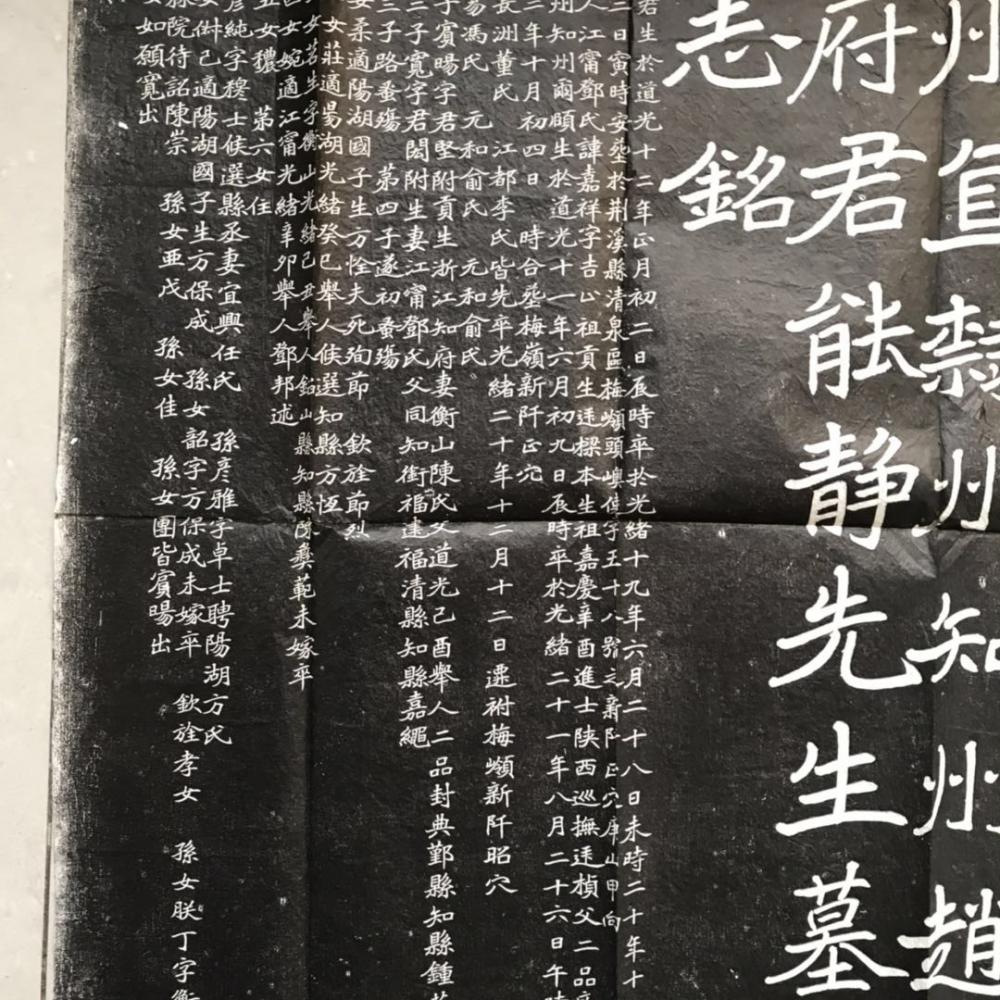 州直隸州知州趙
府君能静先生墓
志銘
君生於道光十二年正月初二日辰時卒於光緒十九年六月二十八日未時二十年十
二日寅時安塟於荆溪縣清泉區梅嶺頭嶼俥字五十八號之新阡正穴庠山甲向
人江甯鄧氏諱嘉祥字吉止祖貢生廷樑本生祖嘉慶辛酉進士陝西巡撫廷楨父二品
州知州爾頤生於道光十一年六月初九日辰時卒於光緒二十一年八月二十六日午時
二年十月初四日時合塟梅嶺新阡正穴
長洲董氏 江都李氏皆先卒光緒二十年十二月十二日遷祔梅嶺新阡昭穴
易馮氏 元和俞氏 元和俞氏
子賓暘字君堅附貢生浙江知府妻衡山陳氏父道光己酉舉人二品封典鄞縣知縣鍾
二子寬字君閎附生妻江甯鄧氏父同知銜福建福清縣知縣嘉繩
三子路蚤殤 第四子遂初蚤殤
女柔適陽湖國子生方恮夫死殉節 欽旌節烈
女莊適陽湖光緒癸巳舉人候選知縣方恆
女若生字衡山光緒己丑舉人銘山縣知縣陳彝範未嫁卒
女婉適江甯光緒辛卯舉人鄧邦述
五女穠 第六女任
彥純字穆士候選縣丞妻宜興任氏 孫彥雅字卓士聘陽湖方氏
女僯已適陽湖國子生方保成 孫女韶字方保成未嫁卒 欽旌孝女 孫女朕丁字衡
縣院待詔陳崇 孫女亜戊 孫女佳 孫女團皆賓暘出
女如願寬出